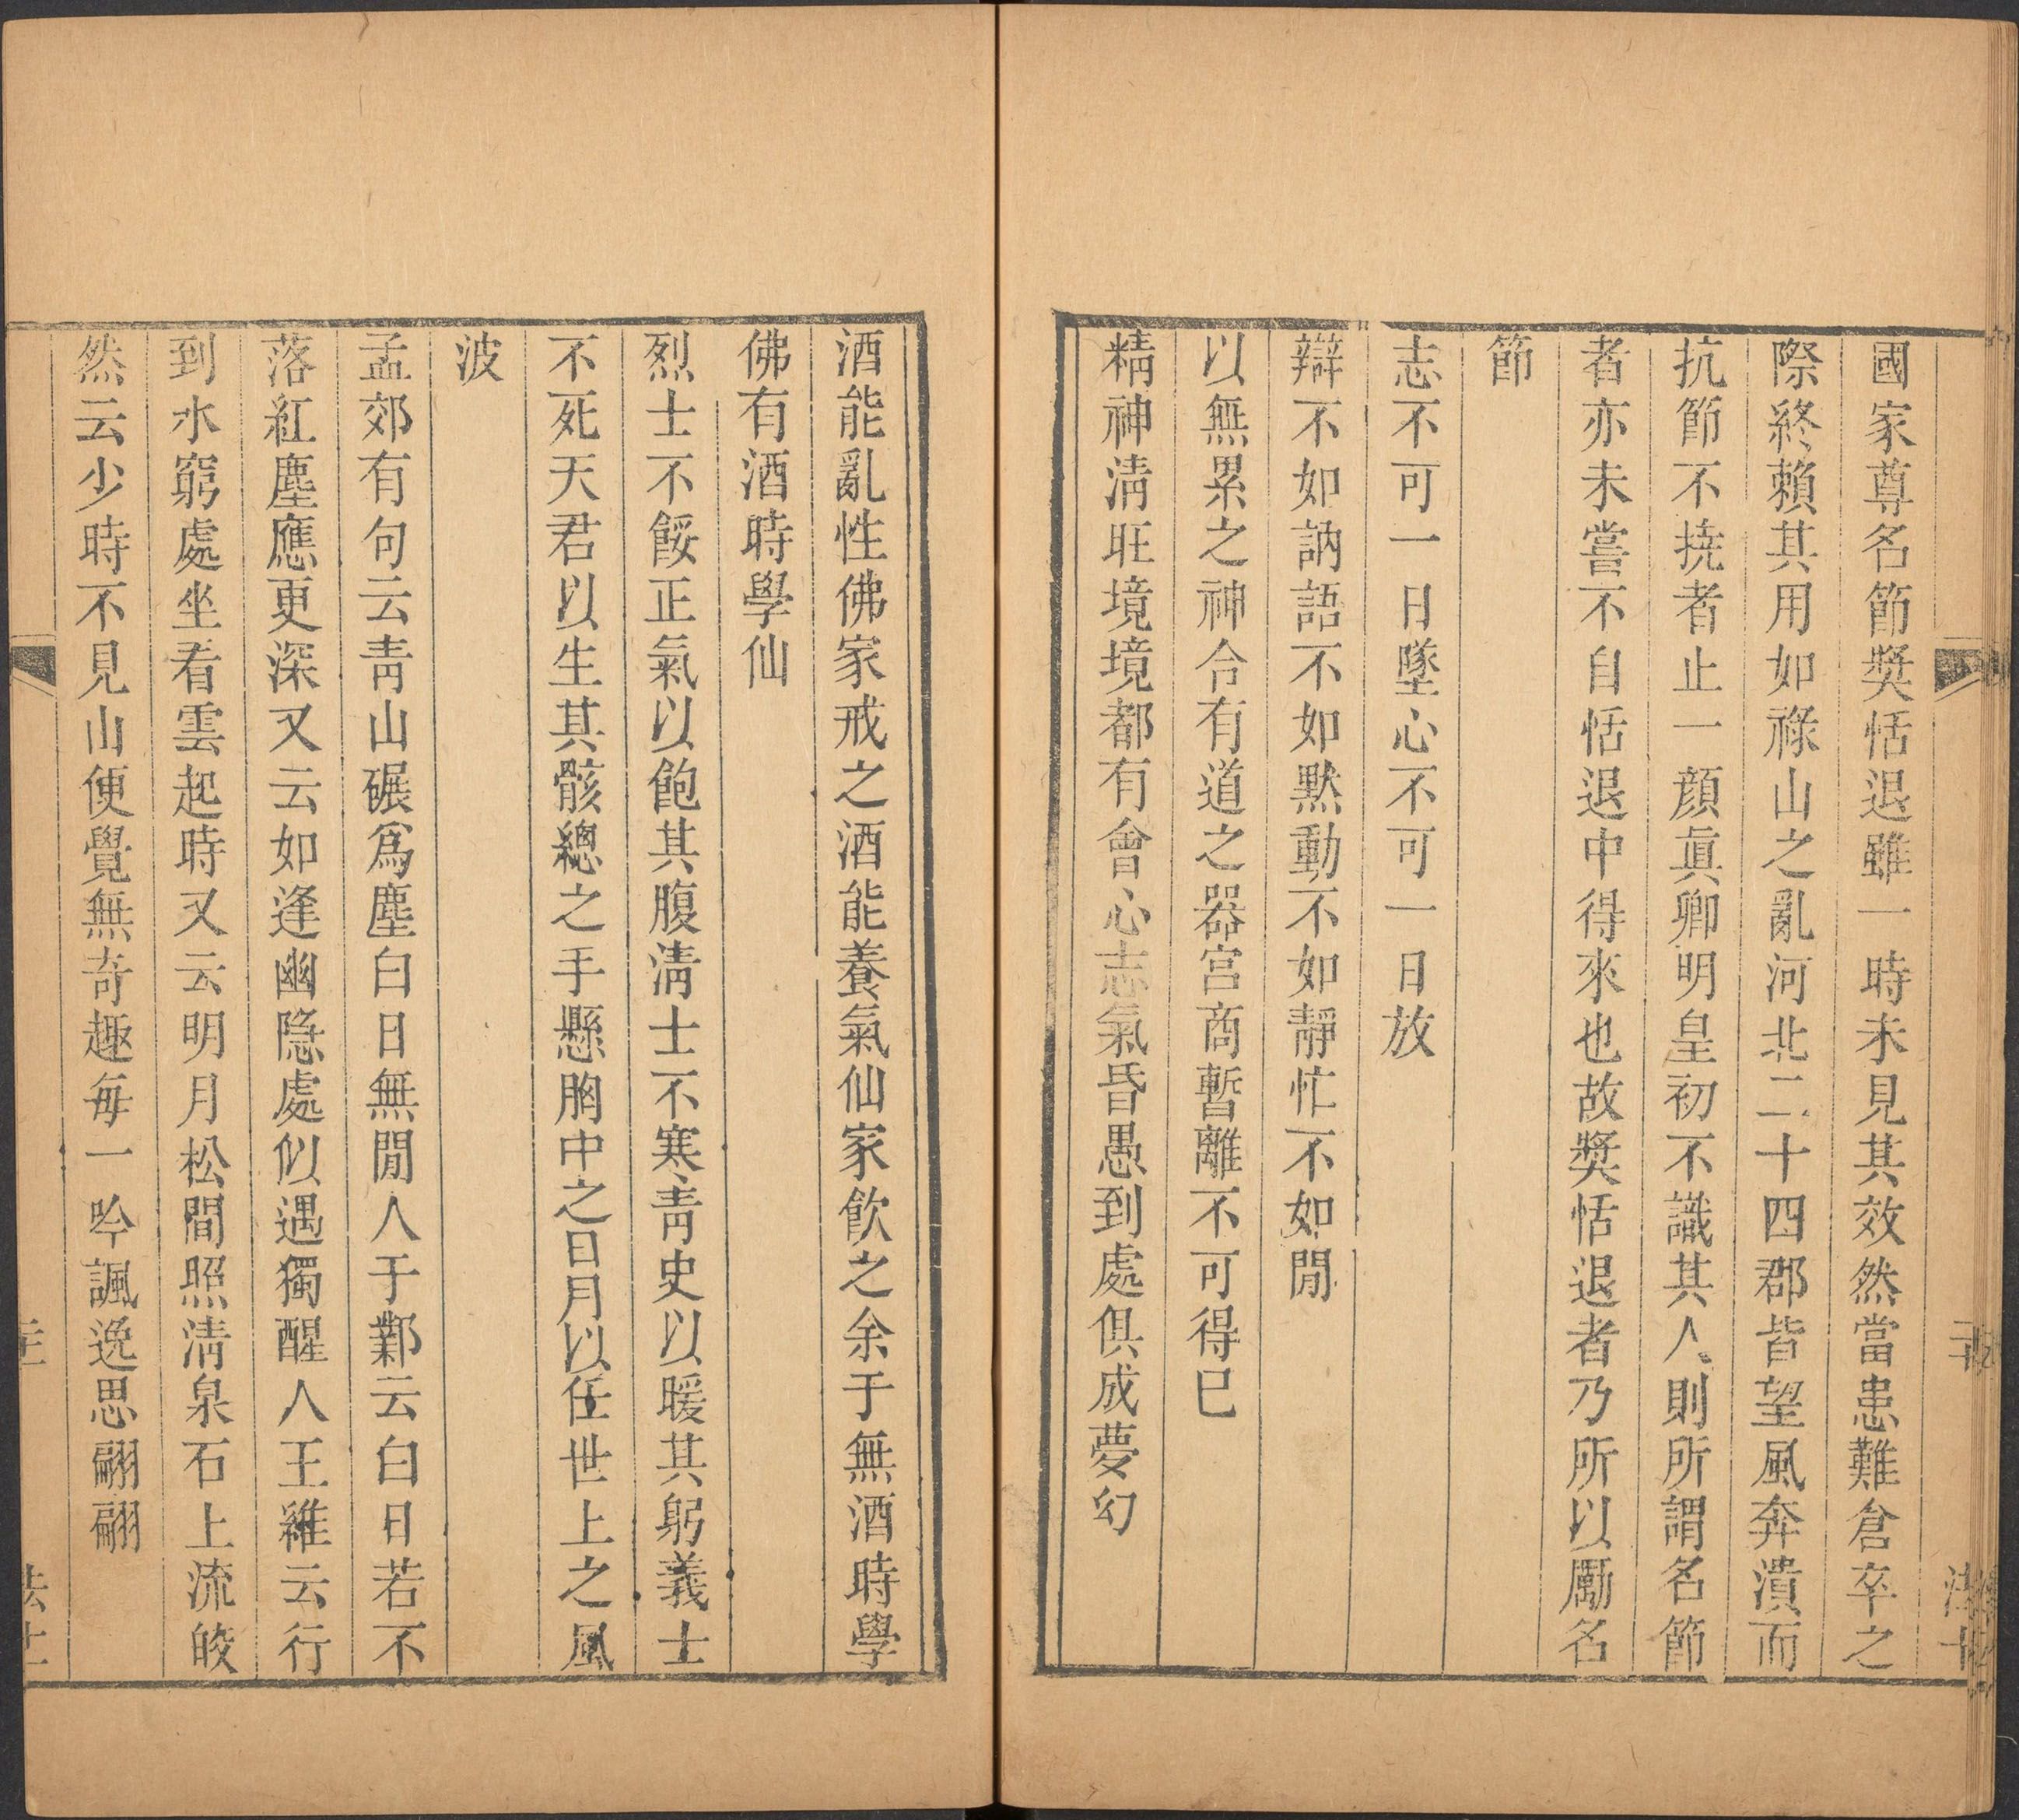 國家尊名節獎恬退雖一時未見其效然當患難倉卒之
際終賴其用如祿山之亂河北二十四郡皆望風奔潰而
抗節不撓者止一顏眞卿明皇初不識其人則所謂名節
者亦未嘗不自恬退中得來也故獎恬退者乃所以勵名
節
志不可一日墜心不可一日放
辯不如訥語不如默動不如靜忙不如閒
以無累之神合有道之器宮商暫離不可得已
精神淸旺境境都有會心志氣昏愚到處俱成夢幻
酒能亂性佛家戒之酒能養氣仙家飮之余于無酒時學
佛有酒時學仙
烈士不餒正氣以飽其腹淸士不寒靑史以暖其躬義士
不死天君以生其骸總之手懸胸中之日月以任世上之風
波
孟郊有句云靑山碾爲塵白日無閒人于鄴云白日若不
落紅塵應更深又云如逢幽隱處似遇獨醒人王維云行
到水窮處坐看雲起時又云明月松間照淸泉石上流皎
然云少時不見山便覺無奇趣每一吟諷逸思翩翩